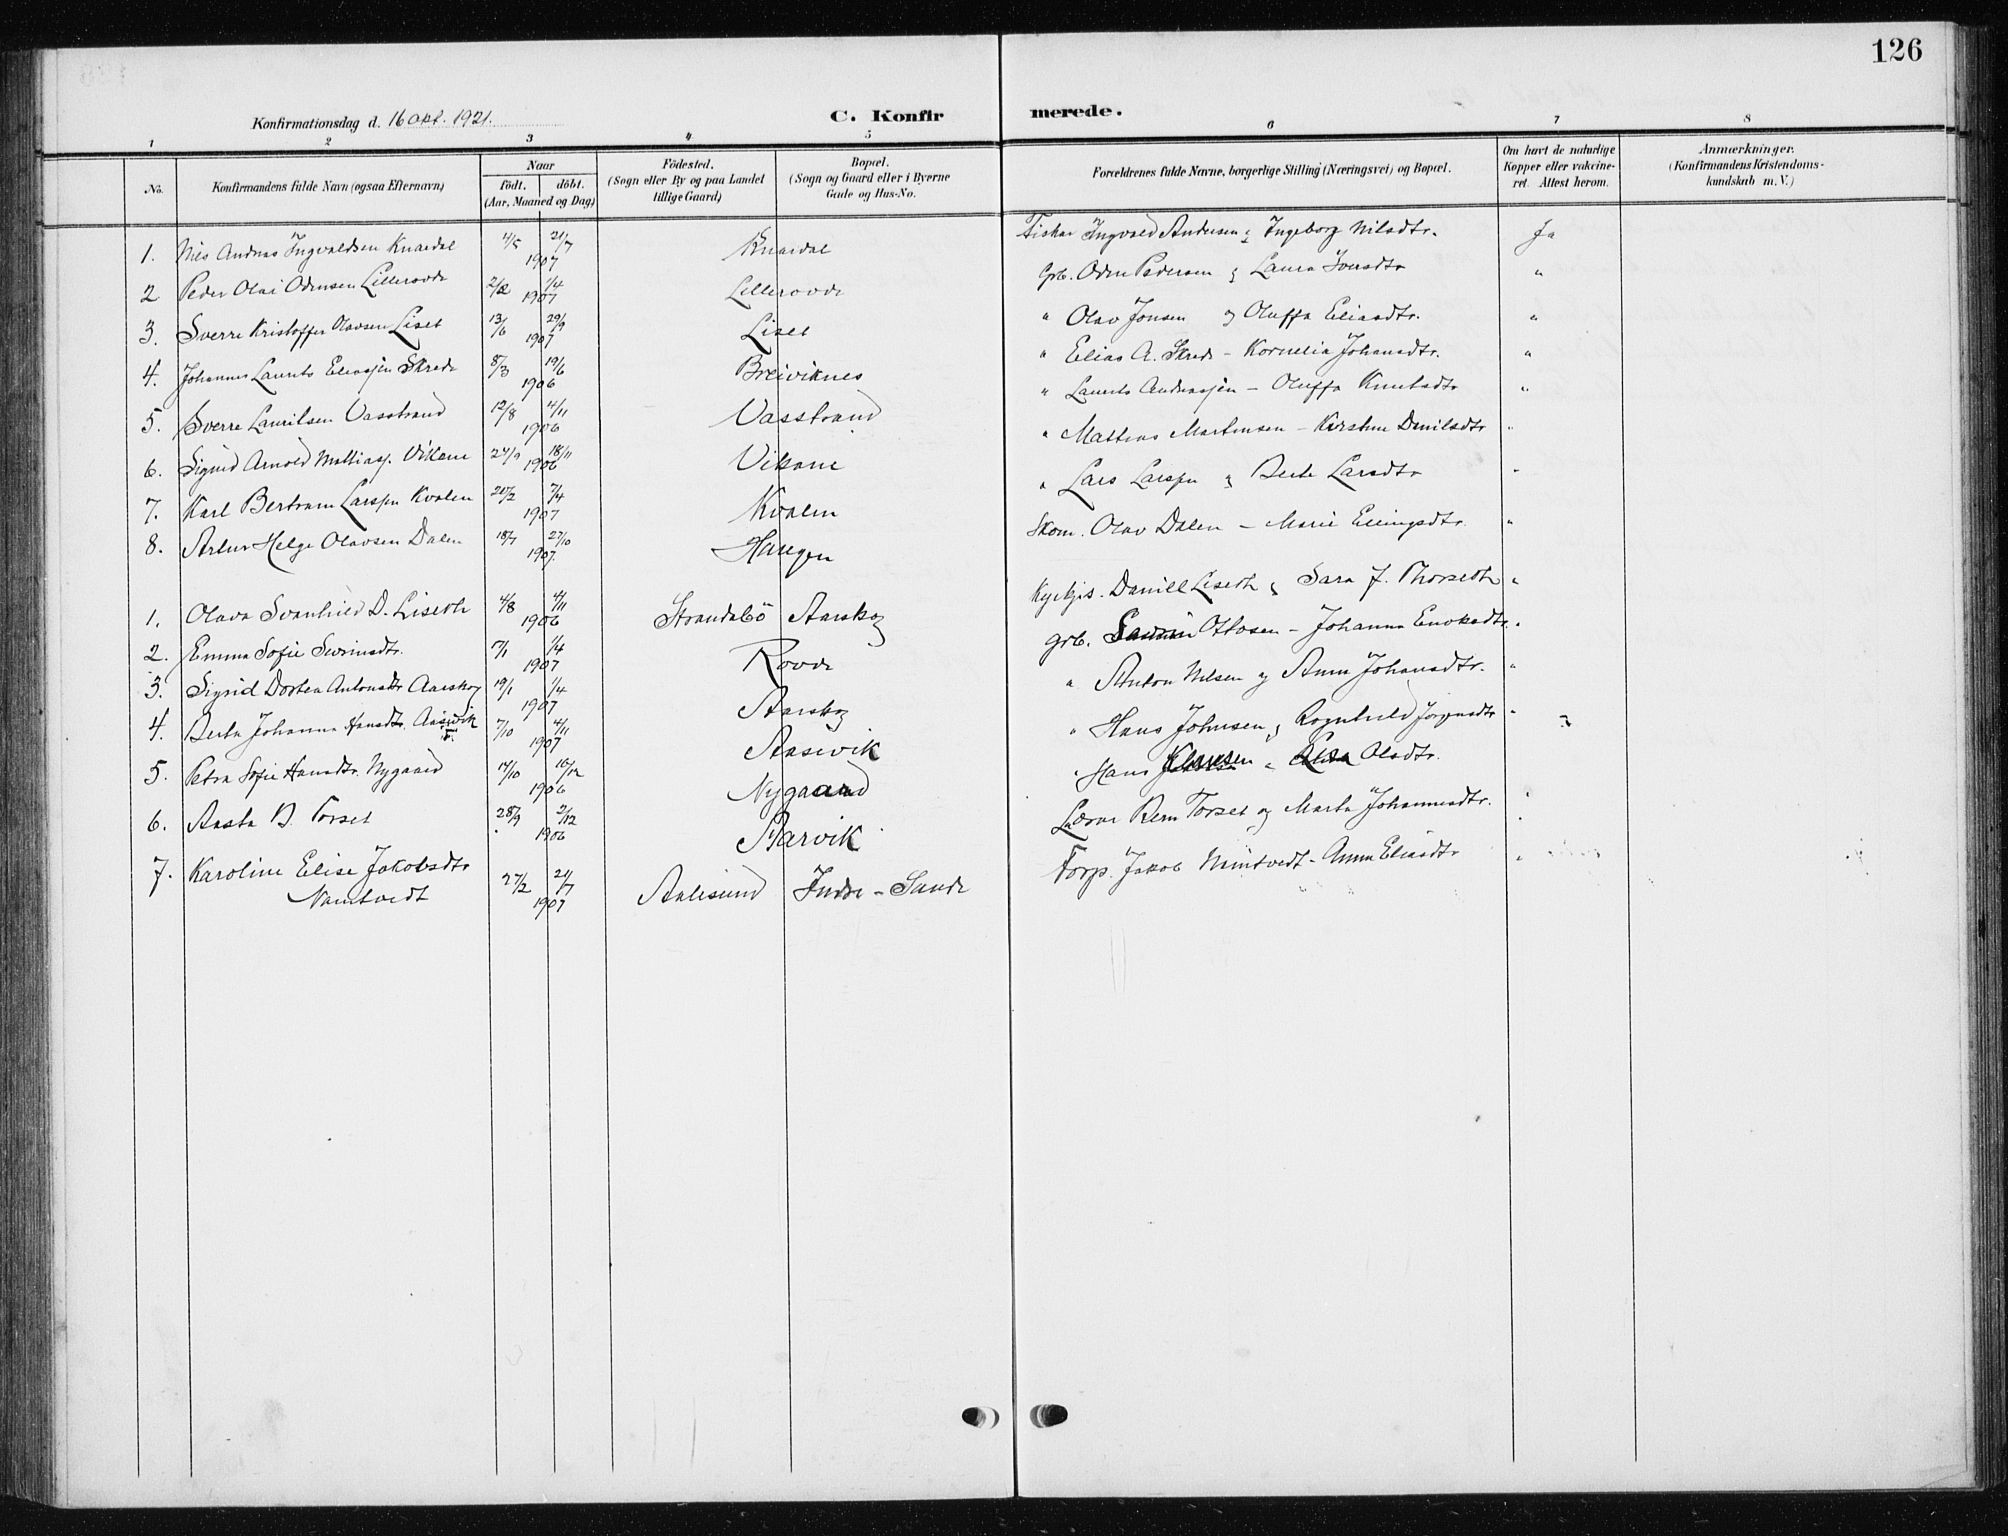 126
Konfirmationsdag d. 16 okt. 1921.
C. Konfirmerede.
1 2 3 4 5 6 7 8
No.
Konfirmandens fulde Navn (ogsaa Efternavn)
Naar
födt. döbt.
(Aar, Maaned og Dag)
Födested.
(Sogn eller By og paa Landet
tillige Gaard)
Bopæl.
(Sogn og Gaard eller i Byerne
Gade og Hus-No.
Forældrenes fulde Navne, borgerlige Stilling (Næringsvei) og Bopæl.
Om havt de naturlige
Kopper eller vakcine-
ret. Attest herom.
Anmærkninger.
(Konfirmandens Kristendoms-
kundskab m. V.)
1. Nils Andreas Ingvaldsen Knardal 4/5 21/7 1907 Knardal Fisker Ingvald Andersen & Ingeborg Nilsdtr. Ja
2 Peder Olai Odinsen Lillerovde 2/2 1/4 1907 Lillerovde Grb. Odin Pedersen & Laura Iversdtr "
3. Sverre Kristoffer Olavsen Liset 13/6 29/9 1907 Liset " Olav Jonsen og Oluffa Eliasdtr. "
4. Johannes Laurits Eliassen Skrede 8/3 19/6 1906 Breiviknes " Elias A. Skrede - Kornelia Johansdtr. "
5. Sverre Lauritsen Vasstrand 12/8 4/11 1906 Vasstrand " Laurits Andreassen - Oluffa Knutsdtr "
6. Sigurd Arnold Mattiass. Vikane 24/9 18/11 1906 Vikane " Mattias Martinsen - Kirstine Danilsdtr "
7. Karl Bertram Larssen Kvalen 20/2 7/4 1907 Kvalen " Lars Larssen & Berte Larsdtr "
8. Artur Helge Olavsen Dalen 18/7 27/10 1907. Haugen Skom. Olav Dalen - Marie Ellingsdtr. "
1. Olava Svanhild D. Liseth 4/8 4/11 1906 Strandabö Aarskog Kyrkjs. Daniel Liseth & Sara J. Thorseth "
2. Emma Sofie Severinsdtr. 7/1 1/4 1907 Rovde Grb. Severin Ottosen - Johanna Enoksdtr. "
3. Sigrid Dortea Antonsdtr Aarskog 19/1 1/4 1907 Aarskog " Anton Nilsen og Anna Johansdtr. "
4. Berta Johanna Hansdtr. Aasevik 7/10 4/11 1907 Aasevik " Hans Johnsen & Ragnhild Jørgensdtr "
5. Petra Sofie Hansdtr. Nygaard 14/10 16/12 1906 Nygaard " Hans Klausen " Lisa Olsdtr.
6. Aasta B. Torset 28/9 2/12 1906 Aarvik Lærar Bern Torset og Marta Johannesdtr.
7. Karoline Elise Jakobsdtr
Namtvedt 27/2 21/7 1907 Aalesund Indre-Sande Forp. Jakob Namtvedt - Anna Eliasdtr "